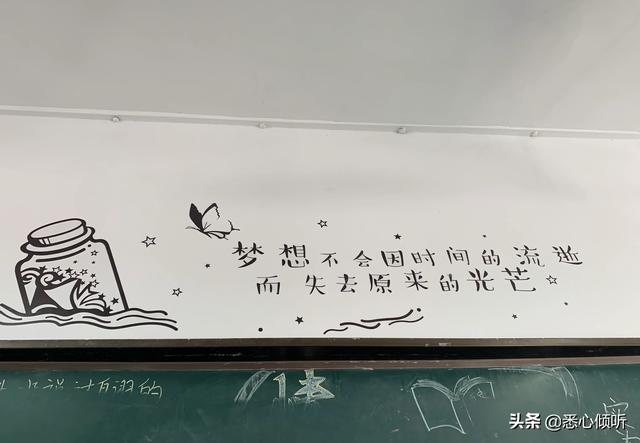 梦想不会因时间的流逝
而失去原来的光芒
本
头条 @悉心倾听